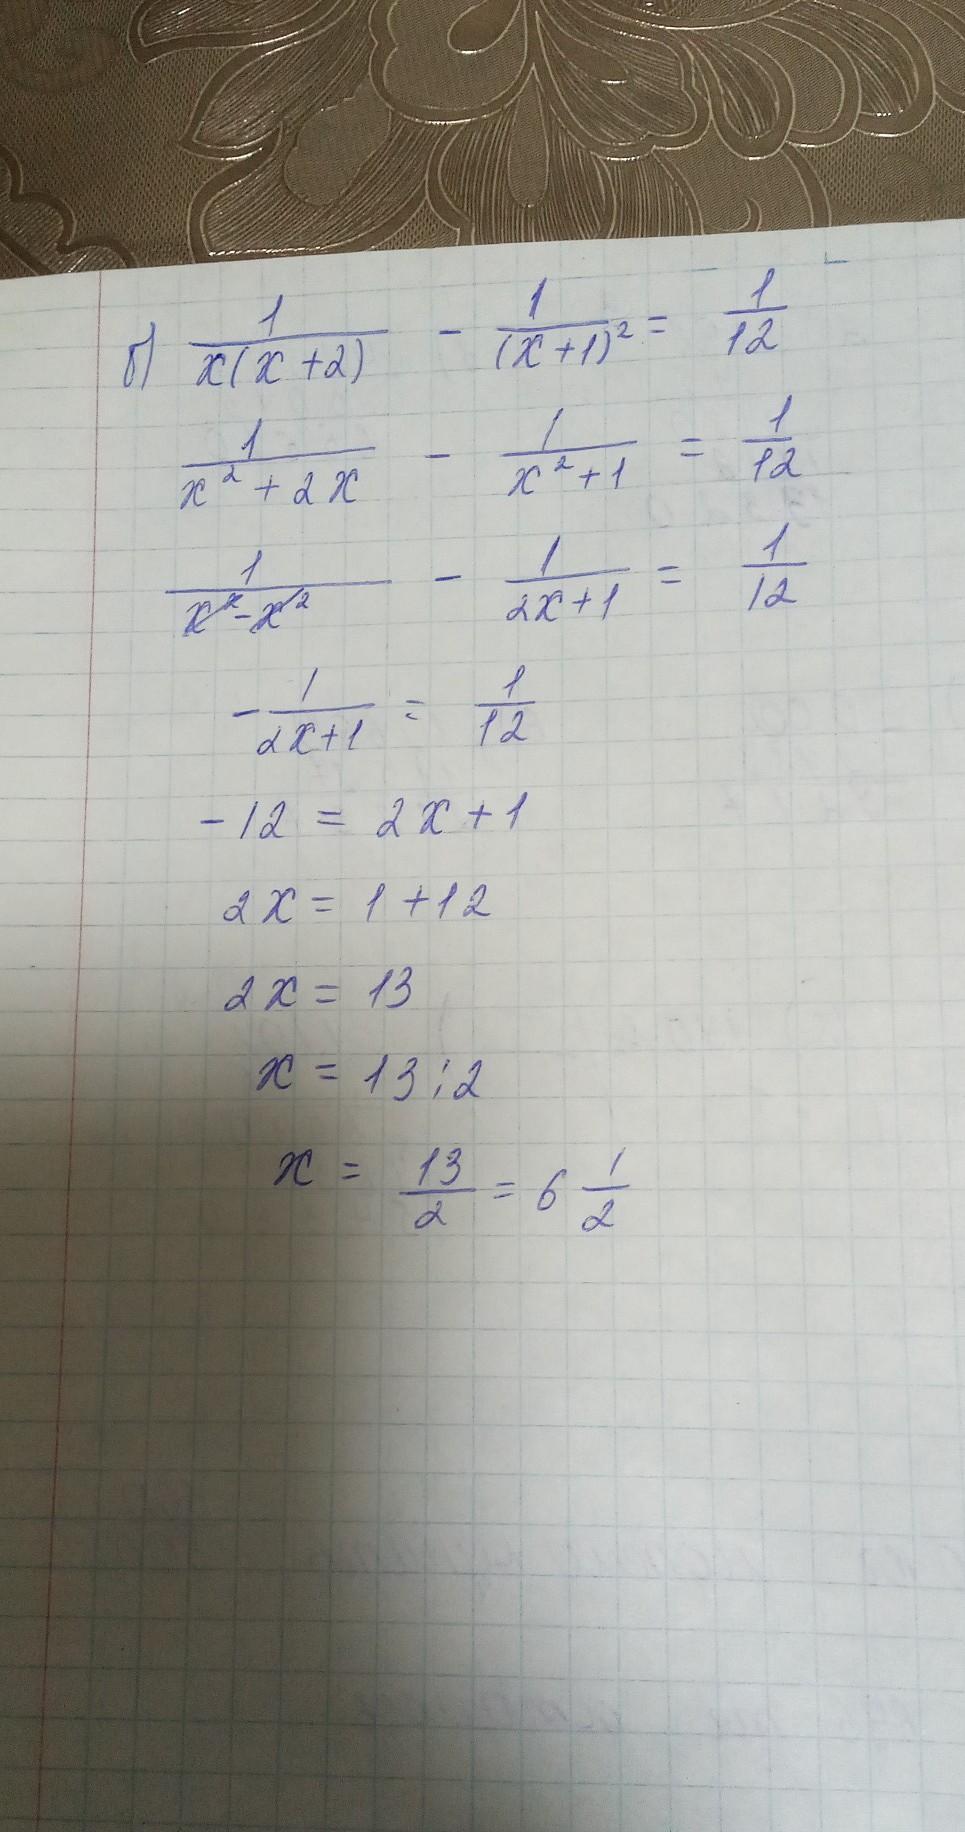 б) 1/(x(x+2)) - 1/(x+1)² = 1/12
1/(x²+2x) - 1/(x²+1) = 1/12
1/(x²-x²) - 1/(2x+1) = 1/12
-1/(2x+1) = 1/12
-12 = 2x+1
2x = 1+12
2x = 13
x = 13:2
x = 13/2 = 6 1/2